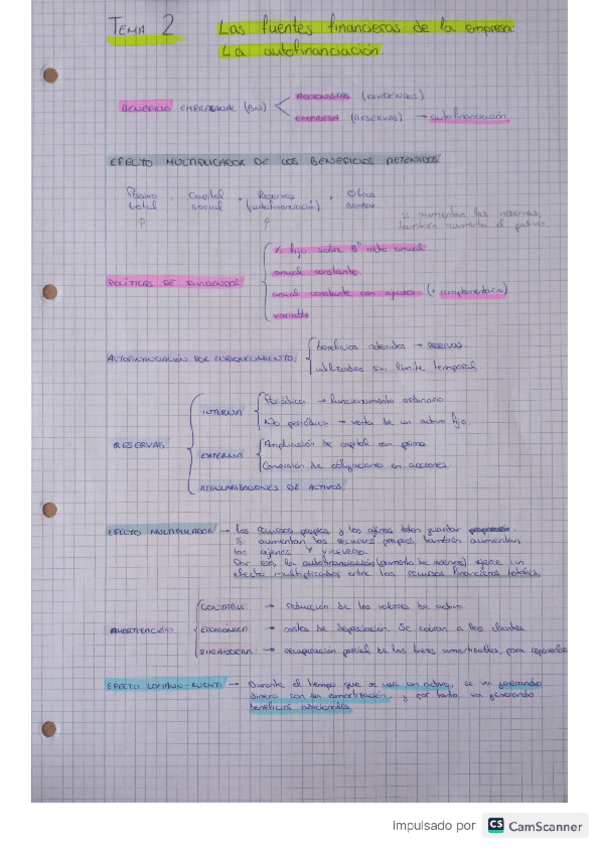 TEMA 2 Las fuentes financieras de la empresa
La autofinanciación
BENEFICIO EMPRESARIAL (BN) ACCIONISTAS (DIVIDENDOS)
EMPRESA (RESERVAS) → autofinanciación
EFECTO MULTIPLICADOR DE LOS BENEFICIOS RETENIDOS
Pasivo total = Capital social + Reservas (autofinanciación) + Otras
si aumentan las reservas,
también aumenta el pasivo.
POLÍTICAS DE DIVIDENDOS
% fijo sobre Bº neto anual
anual constante
anual constante con ajustes (+ complementario)
variable
AUTOFINANCIACIÓN POR ENRIQUECIMIENTO
beneficios retenidos → reservas
utilizados sin límite temporal
RESERVAS
INTERNA
Periódica → funcionamiento ordinario
No periódica → venta de un activo fijo
EXTERNA
Ampliación de capital con prima
Conversión de obligaciones en acciones
REGULARIZACIONES DE ACTIVOS
EFECTO MULTIPLICADOR → Los recursos propios y los ajenos deben guardar proporción.
Si aumentan los recursos propios también aumentan
los ajenos y viceversa.
Por eso, la autofinanciación (aumento de reservas) ejerce un
efecto multiplicador entre los recursos financieros totales.
AMORTIZACIÓN
CONTABLE → reducción de los valores de activo
ECONÓMICA → costes de depreciación. Se cobran a los clientes
FINANCIERA → recuperación parcial de los bienes amortizables, para reponerlos
EFECTO LOHMANN-RUCHTI → Durante el tiempo que se usa un activo, se va generando
dinero con su amortización, y por tanto, va generando
beneficios adicionales.
Impulsado por CS CamScanner